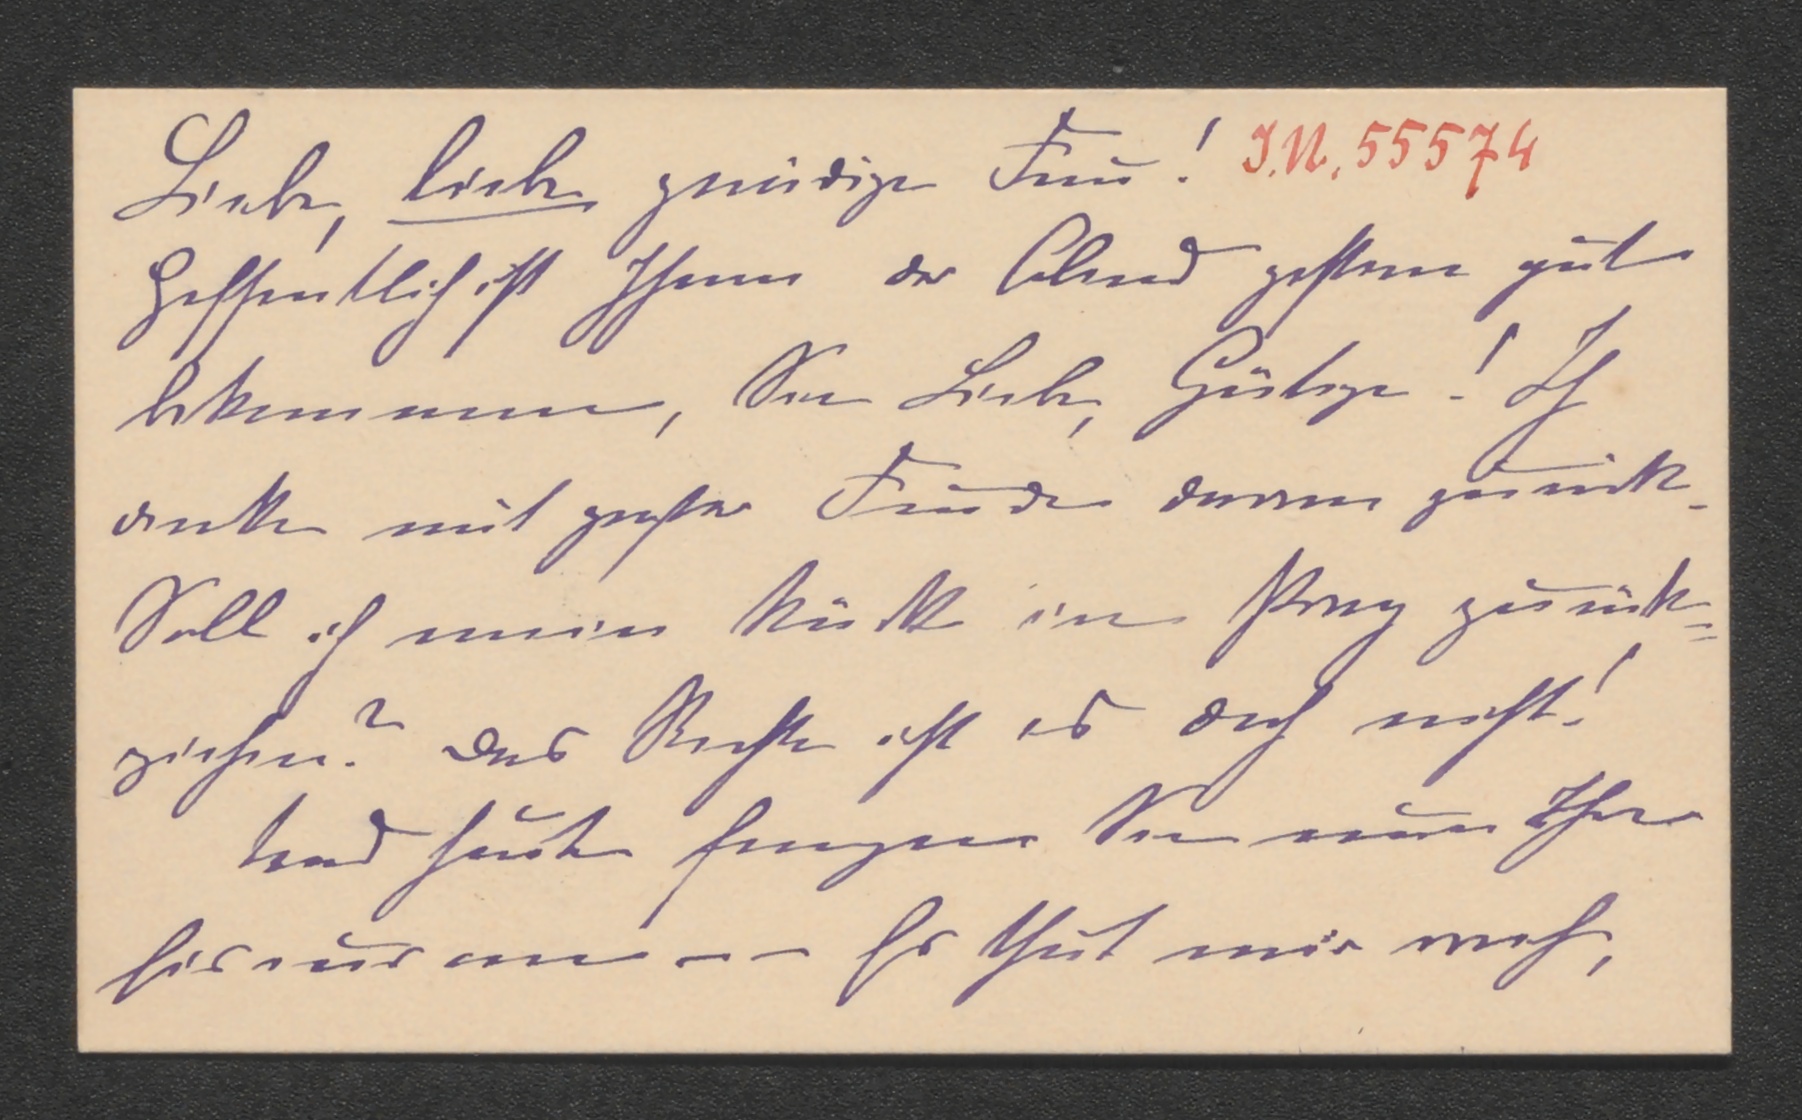 Liebe, liebe gnädige Frau! I.N. 55574
Hoffentlich ist Ihnen der Abend gestern gut
bekommen, Sie Liebe, Gütige! Ich
denke mit großer Freude daran zurück.
Soll ich mein Stück in Prag zurück=
ziehen? Das Rechte ist es doch nicht!
Und heute fangen Sie nun Ihre
an -- Es thut mir weh,